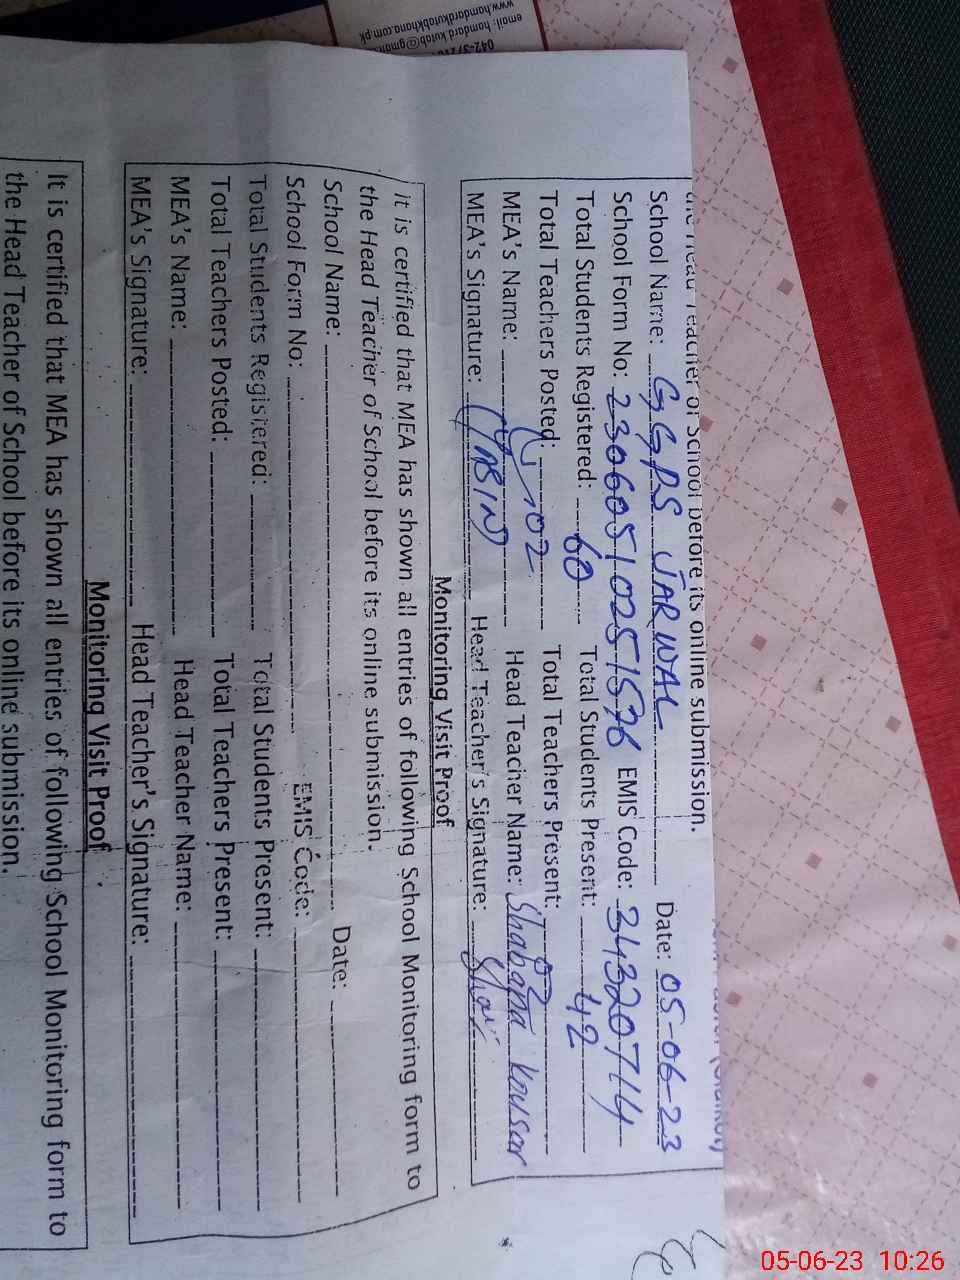 042-37
email: hamdard.kutab@gmail
www.hamdardkutabkhana.com.pk
the Head Teacher of School before its online submission.
School Name: GGPS JARWAL Date: 05-06-23
School Form No: 23060510251576 EMIS Code: 34320714
Total Students Registered: 60 Total Students Present: 42
Total Teachers Posted: 02 Total Teachers Present: 02
MEA's Name: Head Teacher Name: Shabana Kousar
MEA's Signature: Head Teacher's Signature:
Monitoring Visit Proof
It is certified that MEA has shown all entries of following School Monitoring form to
the Head Teacher of School before its online submission.
School Name: Date:
School Form No: EMIS Code:
Total Students Registered: Total Students Present:
Total Teachers Posted: Total Teachers Present:
MEA's Name: Head Teacher Name:
MEA's Signature: Head Teacher's Signature:
Monitoring Visit Proof
It is certified that MEA has shown all entries of following School Monitoring form to
the Head Teacher of School before its online submission.
05-06-23 10:26